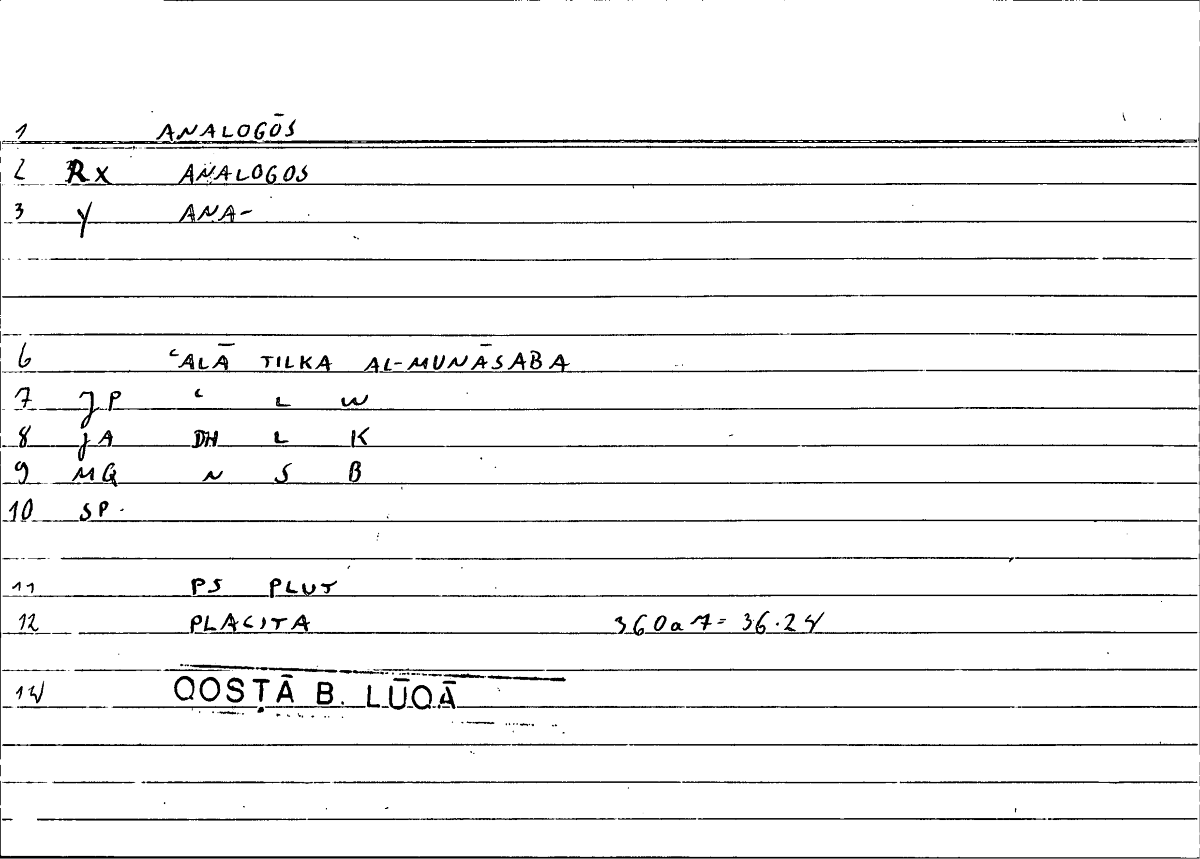 1 ANALOGŌS
2 Rx ANALOGOS
3 Y ANA-
6 ʿALĀ TILKA AL-MUNĀSABA
7 JP ʿ L W
8 JA DH L K
9 MQ N S B
10 SP.
11 PS PLUT
12 PLACITA 360a7= 36.24
14 QOSṬĀ B. LŪQĀ